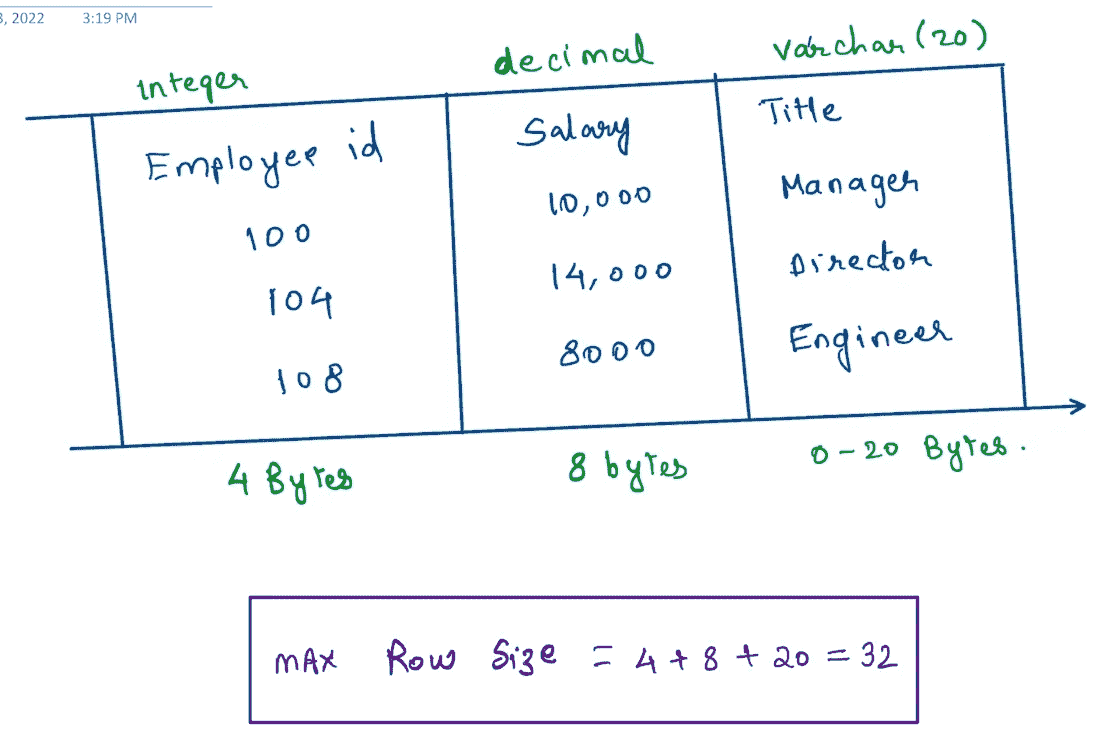 3, 2022 3:19 PM
Integer decimal varchar (20)
Employee id Salary Title
100 10,000 Manager
104 14,000 Director
108 8000 Engineer
4 Bytes 8 bytes 0-20 Bytes.
mAx Row Size = 4 + 8 + 20 = 32